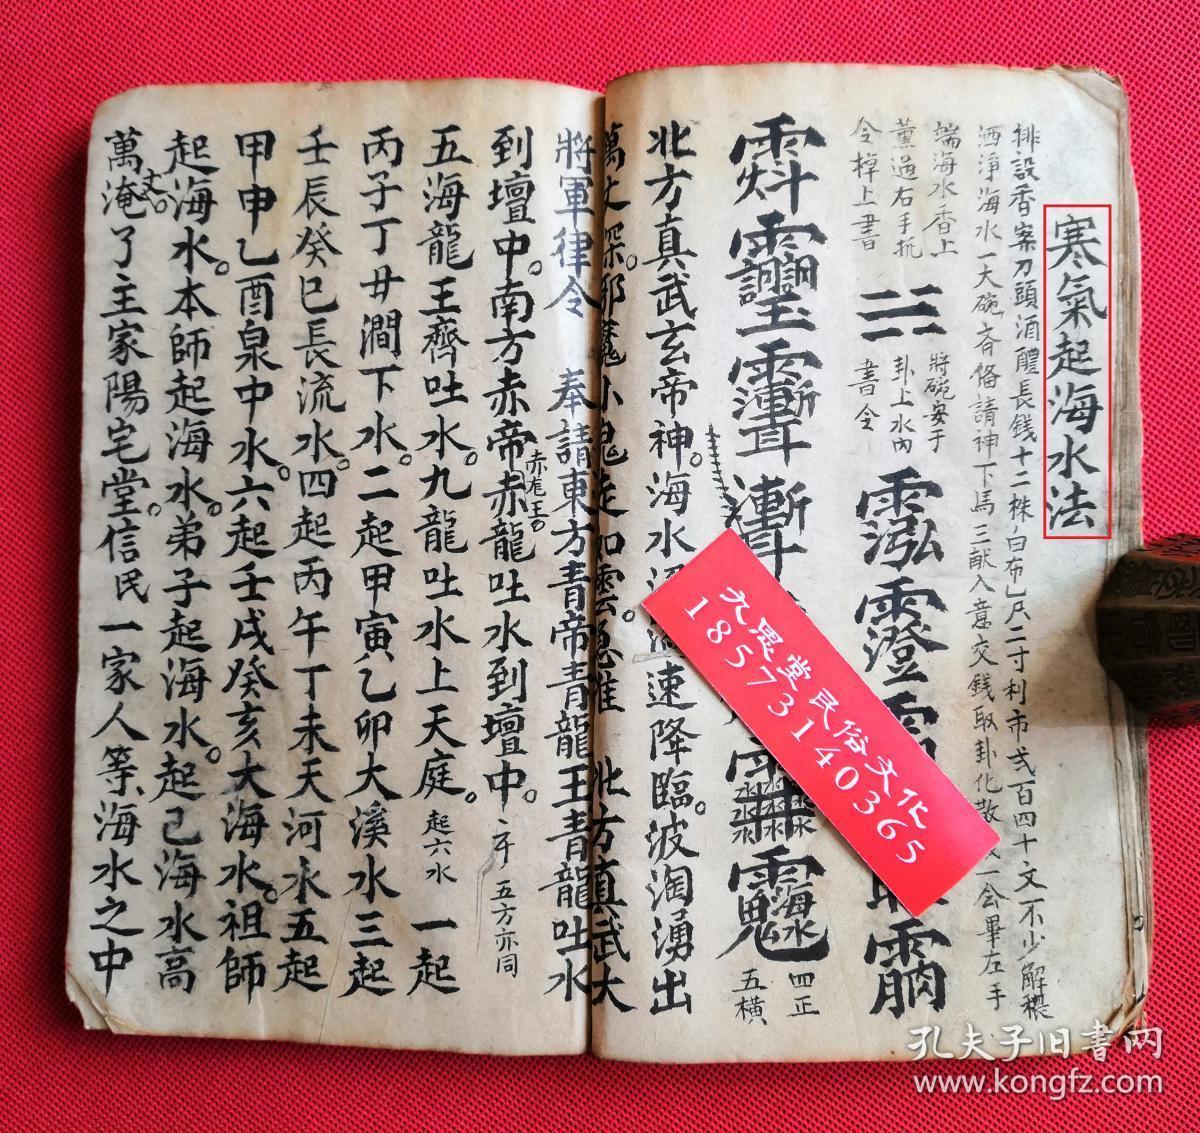 寒氣起海水法
排設香案刀頭酒醴長錢十二株白布乚尺二寸利市弍百四十文不少解穢
洒淨海水一大碗斋俻請神下馬三献入意交錢取卦化散一会畢左手
端海水香上
薰過右手抓
令棹上書
將碗安于
卦上水內
書令
四正
五橫
北方真武玄帝神。海水滔速降臨。波淘湧出
萬丈深。邪魔小鬼走如雲。急准 北方真武大
將軍律令 奉請東方青帝青龍王青龍吐水
到壇中。南方赤帝赤龍吐水到壇中。五方亦同
赤龙王
五海龍王齊吐水。九龍吐水上天庭。起六水 一起
丙子丁丑澗下水。二起甲寅乙卯大溪水三起
壬辰癸巳長流水。四起丙午丁未天河水五起
甲申乙酉泉中水。六起壬戌癸亥大海水。祖師
起海水。本師起海水。弟子起海水。起己海水高
萬丈。淹了主家陽宅堂。信民一家人等、海水之中
九思堂民俗文化
18573140365
孔夫子旧书网
www.kongfz.com